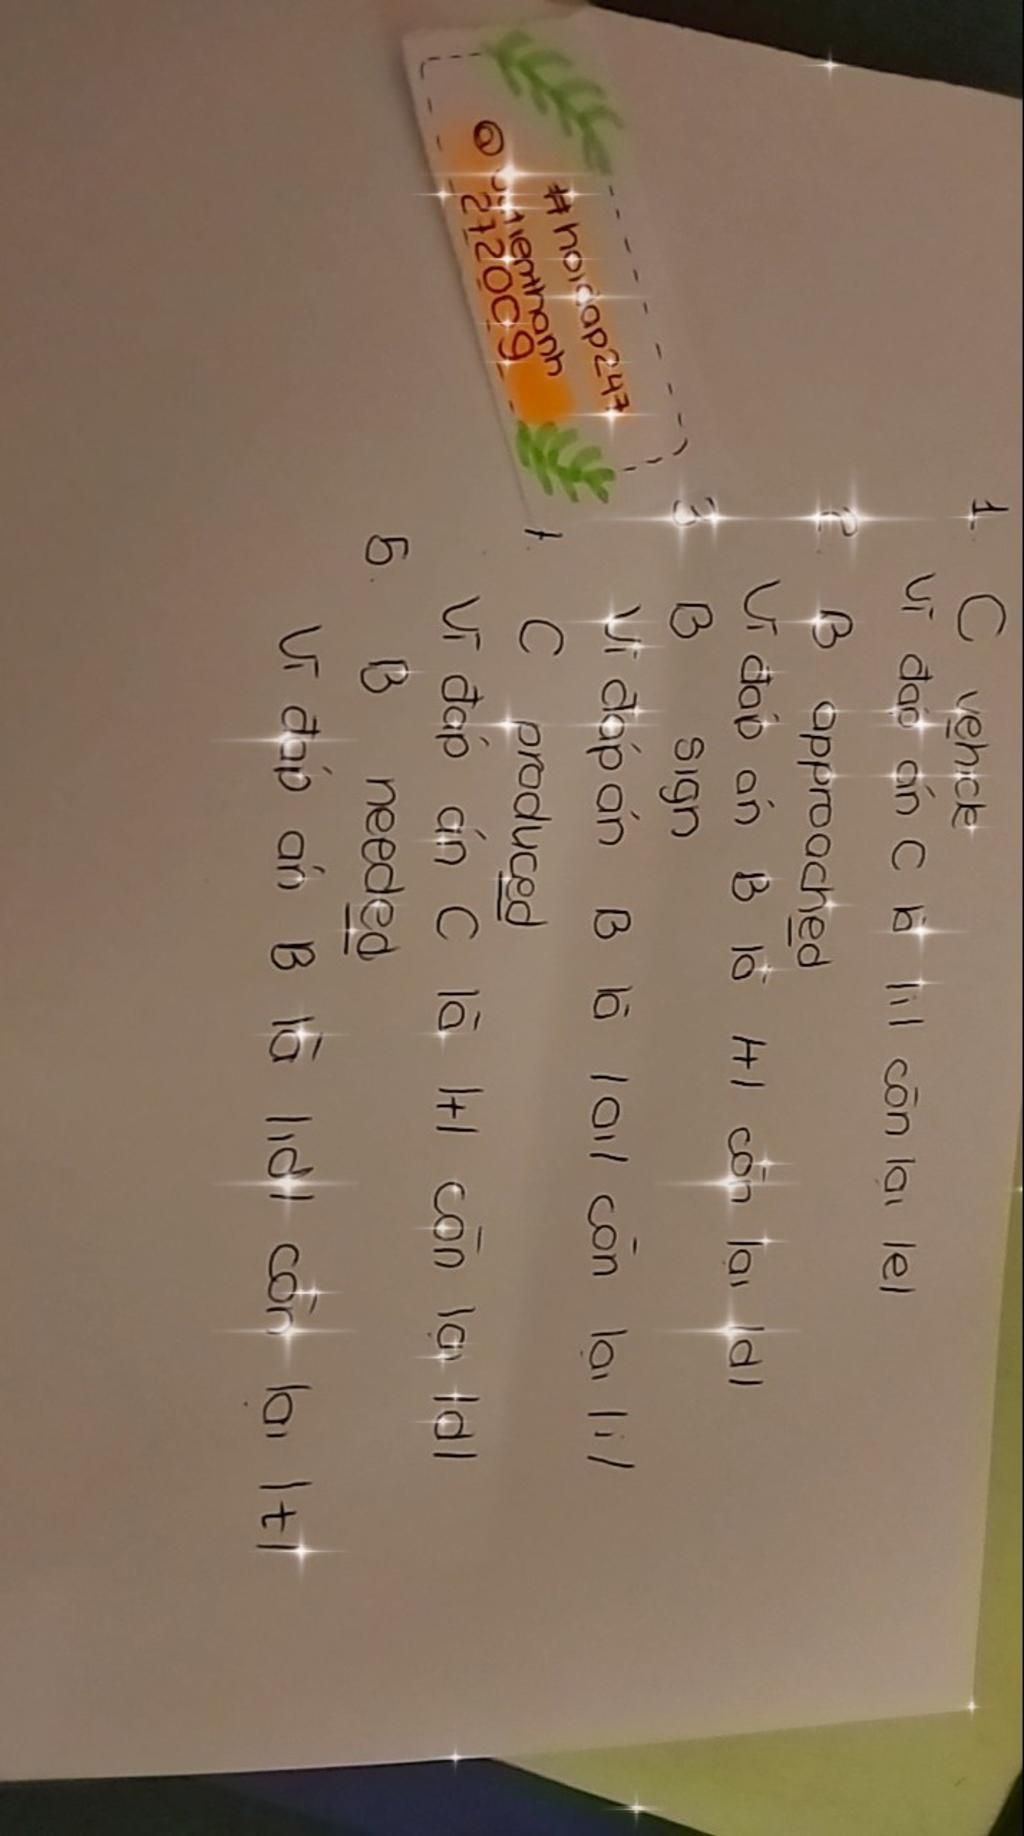 #hoidap247
272009
1. C vehicle
Vì đáp án C là /i/ còn lại /e/
2. B approached
Vì đáp án B là /t/ còn lại /d/
3 B sign
Vì đáp án B là /ai/ còn lại /i/
C produced
Vì đáp án C là /t/ còn lại /d/
5. B needed
Vì đáp án B là /id/ còn lại /t/